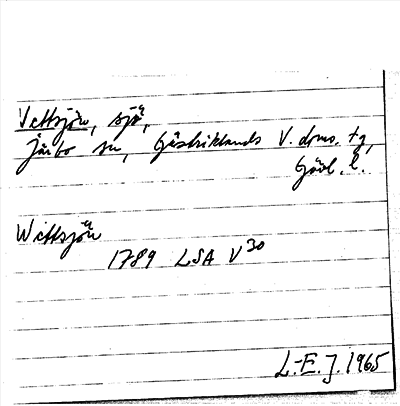 Vettsjön, sjö,
Järbo sn, Gästriklands V. doms. tg,
Gävl. l.
Wittsjön
1789 LSA V 30
L.-E. J. 1965